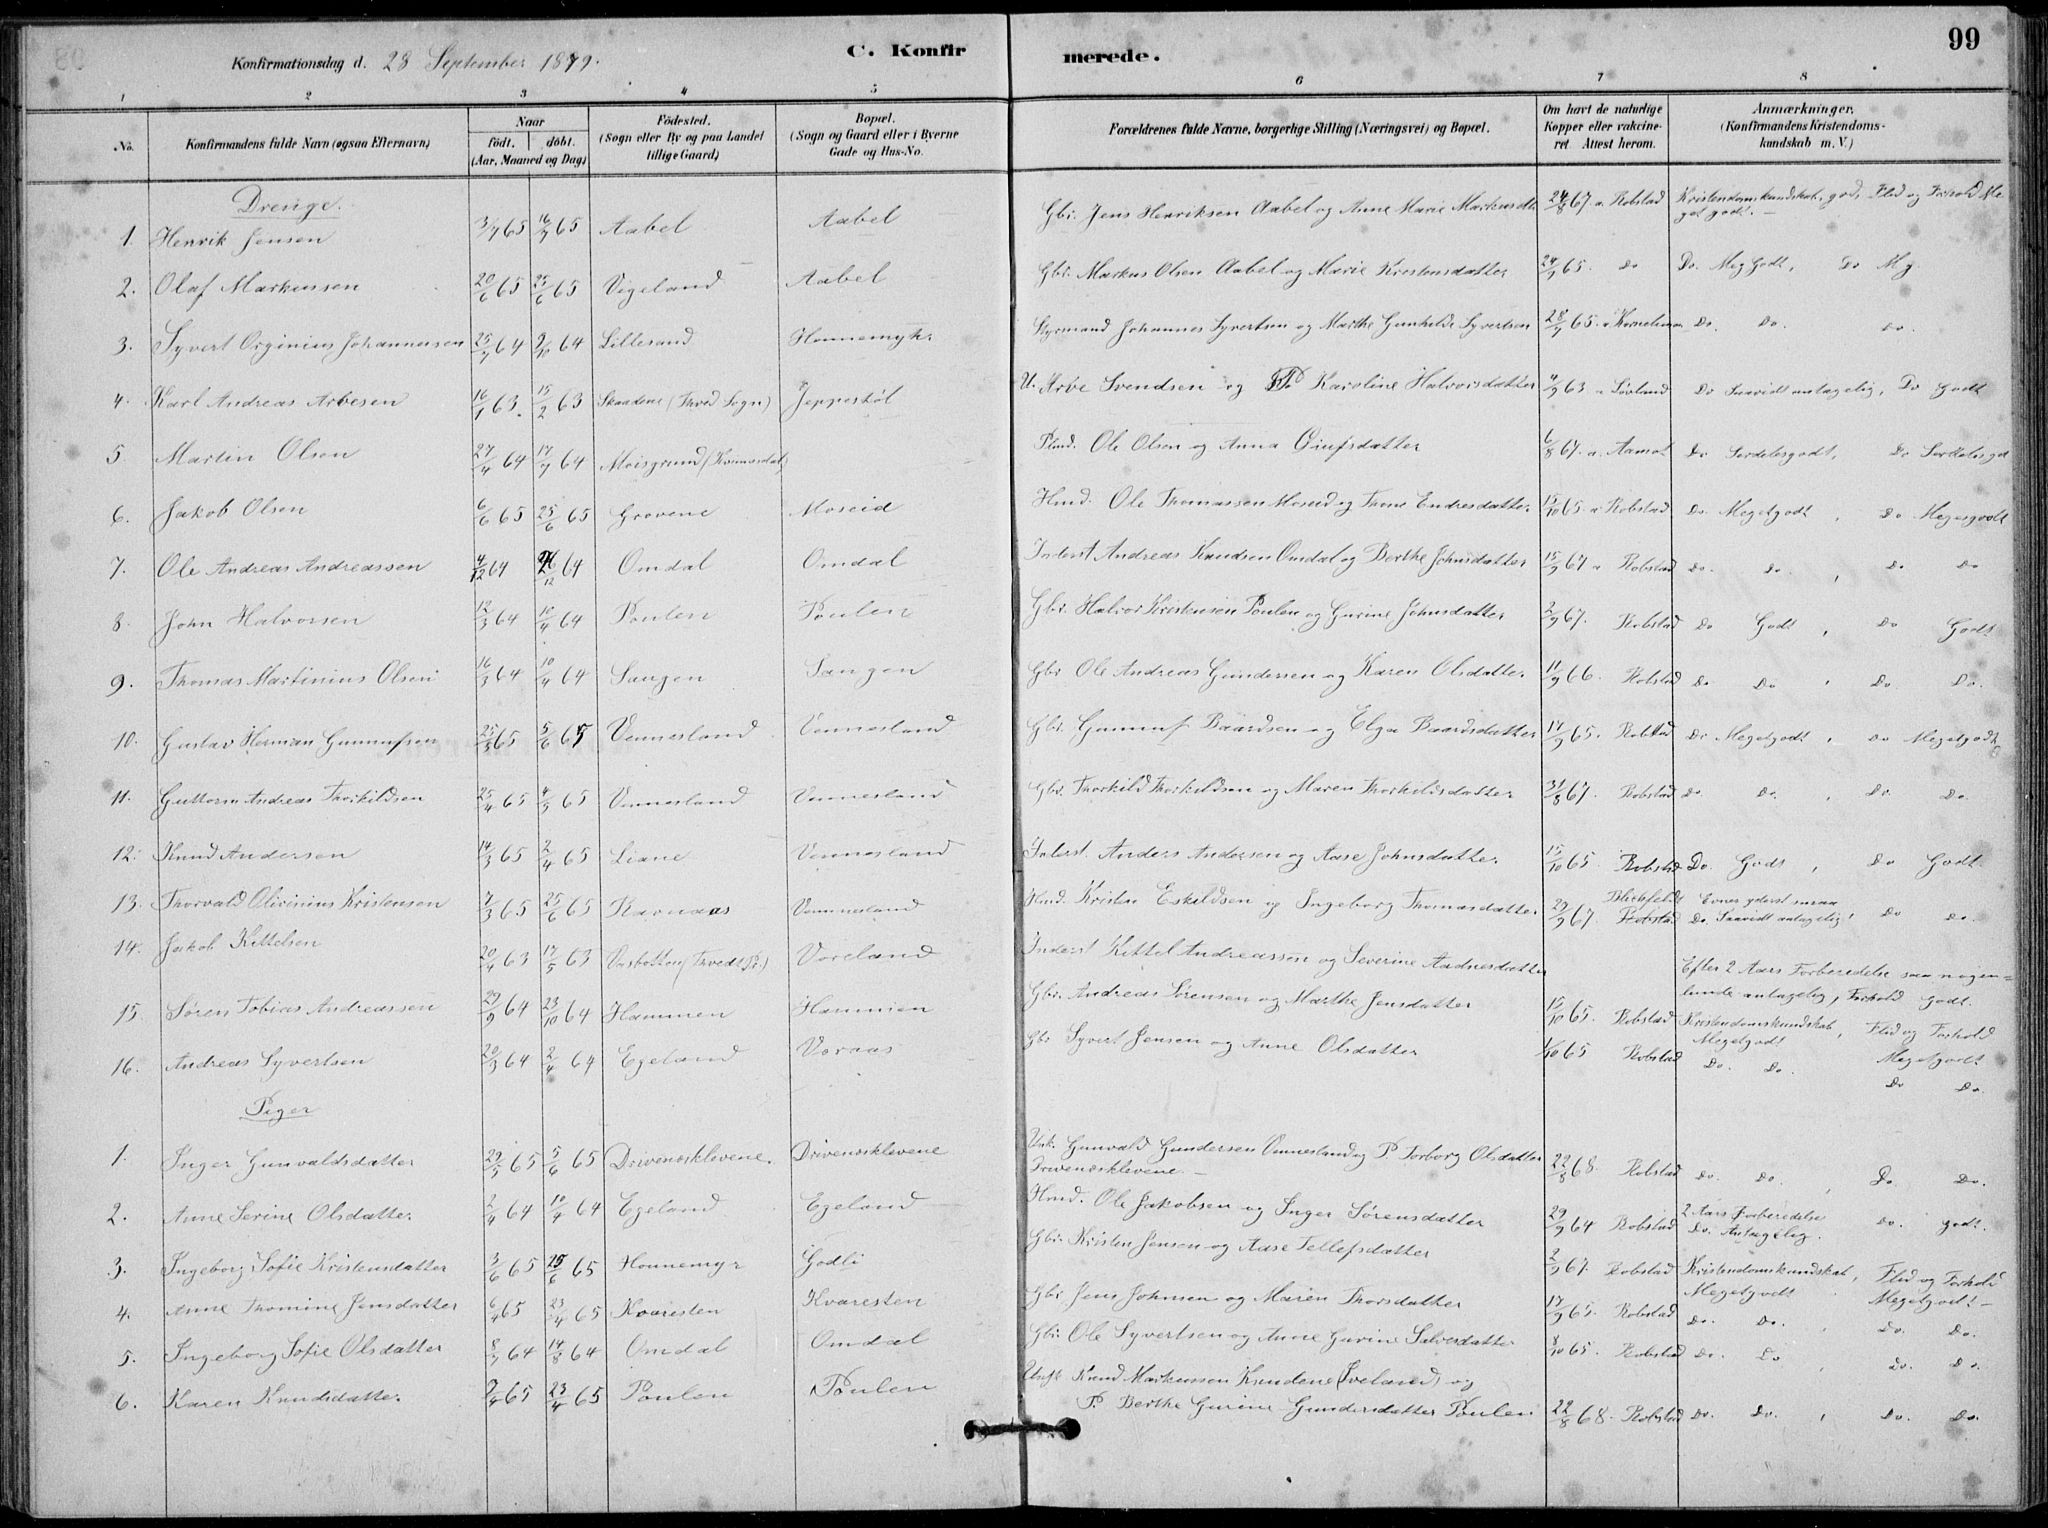 99
Konfirmationsdag d. 28 September 1879.
C. Konfirmerede.
1 2 3 4 5 6 7 8
No.
Konfirmandens fulde Navn (ogsaa Efternavn)
Naar
födt. döbt.
(Aar, Maaned og Dag)
Födested.
(Sogn eller By og paa Landet tillige Gaard)
Bopæl.
(Sogn og Gaard eller i Byerne Gade og Hus-No.
Forældrenes fulde Navne, borgerlige Stilling (Næringsvei) og Bopæl.
Om havt de naturlige Kopper eller vakcineret. Attest herom.
Anmærkninger.
(Konfirmandens Kristendomskundskab m. V.)
Drenge.
1. Henrik Jensen 3/7 65 16/7 65 Aabel Aabel Gbr. Jens Henriksen Aabel og Anne Marie Markusdtr 24/8 67 a. Robstad Kristendomskundskab, god, Flid og Forhold Meget godt.
2. Olaf Markussen 20/6 65 25/6 65 Vigeland Aabel Gbr. Markus Olsen Aabel og Marie Kristensdatter 24/9 65 Do Do. Meg Godt, Do Mg
3. Syvert Orginius Johannesen 25/7 64 2/10 64 Lillesand Honnemyr Styrmand Johannes Syvertsen og Marthe Gunhilde Syvertsen 28/7 65 a Do. Do. Do.
4. Karl Andreas Arbesen 16/1 63 15/2 63 Skaadene (Thved Sogn) Jeppestøl U. Arve Svendsen og P. Karoline Halvorsdatter 4/9 63 a Sørland Do Saavidt antagelig, Do Godt
5. Martin Olsen 27/4 64 17/7 64 Moisgrund Ole Olsen og Anna 6/8 67 a. Aamot Do Serdelesgodt, Do Serdelesgd
6. Jakob Olsen 6/6 65 25/6 65 Grovene Moseid Hmd. Ole Thomassen Moseid og Thone Endresdatter. 15/10 65 a Robstad Do. Megetgodt, Do Megetgodt
7. Ole Andreas Andreassen 4/12 64 26/12 64 Omdal Omdal Inderst Andreas Knudsen Omdal og Berthe Johnsdatter 15/9 67 a Robstad Do. Do., Do Do
8. John Halvorsen 12/3 64 10/4 64 Poulen Poulen Gbr. Halvor Kristensen Poulen og Gurine Johnsdatter 2/9 67. Robstad Do Godt, Do Godt
9. Thomas Martinius Olsen 16/3 64 10/4 64 Sangen Sangen Gbr Ole Andreas Gundersen og Karen Olsdatter 11/9 66. Robstad Do Do, Do. Do.
10. Gustav Herman Gunnufsen 25/3 65 5/6 65 Vennesland Vennesland Gbr. Gunnuf Baardsen og Elga Baardsdatter 17/9 65. Robstad Do Megetgodt, Do Megetgodt
11. Guttorm Andreas Thorkildsen 25/4 65 4/5 65 Vennesland Vennesland Gbr. Thorkild Thorkildsen og Maren Thorkildsdatter 31/8 67. Robstad Do. Do., Do. Do.
12. Knud Andersen 14/3 65 2/4 65 Liane Vennesland Inderst. Anders Andersen og Aase Johnsdatter. 15/10 65. Robstad Do. Godt, Do Godt.
13. Thorvald Olivinius Kristensen 7/3 65 25/6 65 Ravnaas Vennesland Hmd. Kristen Eskildsen og Ingeborg Thomasdatter 29/9 67. Blickfeldt Robstad Evner yderst smaa Do. Saavidt antagelig, Do Do.
14. Jakob Kittelsen 20/4 63 17/5 63 Vasbotten (Tvedt Pr.) Voreland Inderst Kittel Andreassen og Severine Aadnesdatter Efter 2 Aars Forberedelse saa nogenlunde antagelig, Forhold godt.
15. Søren Tobias Andreassen 29/9 64 23/10 64 Hammen Hammen Gbr. Andreas Sørensen og Marthe Jensdatter 15/10 65. Robstad Kristendomskundskab Megetgodt, Flid og Forhold Megetgodt
16. Andreas Syvertsen 20/3 64 2/4 64 Egeland Voraas Gbr Syvert Jensen og Anne Olsdatter 1/10 65 Robstad Do. Do. Do Do.
Piger
1. Inger Gunvaldsdatter 29/5 65 5/6 65 Drivenesklevene. Drivenesklevene Unk. Gunvald Gundersen Omnesland og P. Torborg Olsdatter Drivenesklevene 22/8 68. Robstad Do. Do., Do. Do.
2. Anne Serine Olsdatter 2/4 64 10/4 64 Egeland Egeland Hmd. Ole Jakobsen og Inger Sørensdatter 29/9 64 Robstad 2 Aars Forberedelse Do. Antagelig. Do. godt.
3. Ingeborg Sofie Kristensdatter 3/6 65 25/6 65 Honnemyr Godli Gbr. Kristen Jensen og Aase Tellefsdatter 2/9 67. Robstad Kristendomskundskab, Megetgodt Flid og Forhold Megetgodt
4. Anne Thomine Jensdatter 6/4 65 23/4 65 Kvaresten Kvaresten Gbr. Jens Johnsen og Maren Thorsdatter 17/9 65. Robstad Do. Do., Do. Do.
5. Ingeborg Sofie Olsdatter 8/7 64 14/8 64 Omdal Omdal Gbr. Ole Syvertsen og Anne Gurine Salvesdatter 8/10 65. Robstad Do. Do, Do. Do.
6. Karen Knudsdatter. 9/4 65 23/4 65 Poulen Poulen Knud Markussen Knudene (Iveland) og
P. Berthe Gurine Gundersdatter Poulen 22/8 68. Robstad Do. Do., Do. Do.